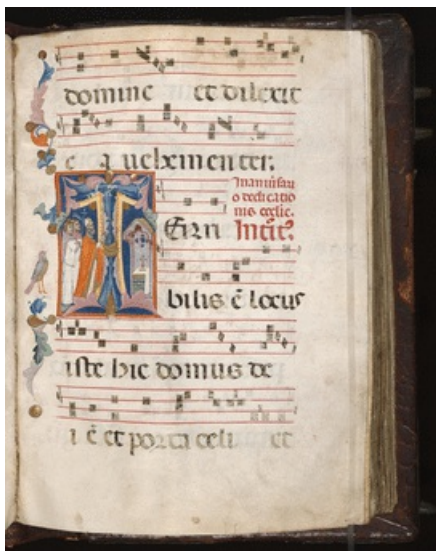 domine et dilexit
e a uehementer.
In anniuersari
o dedicatio
nis ecclie.
Intoit?
T Erri
bilis ē locus
iste hic domus de
i ē et porta celi et